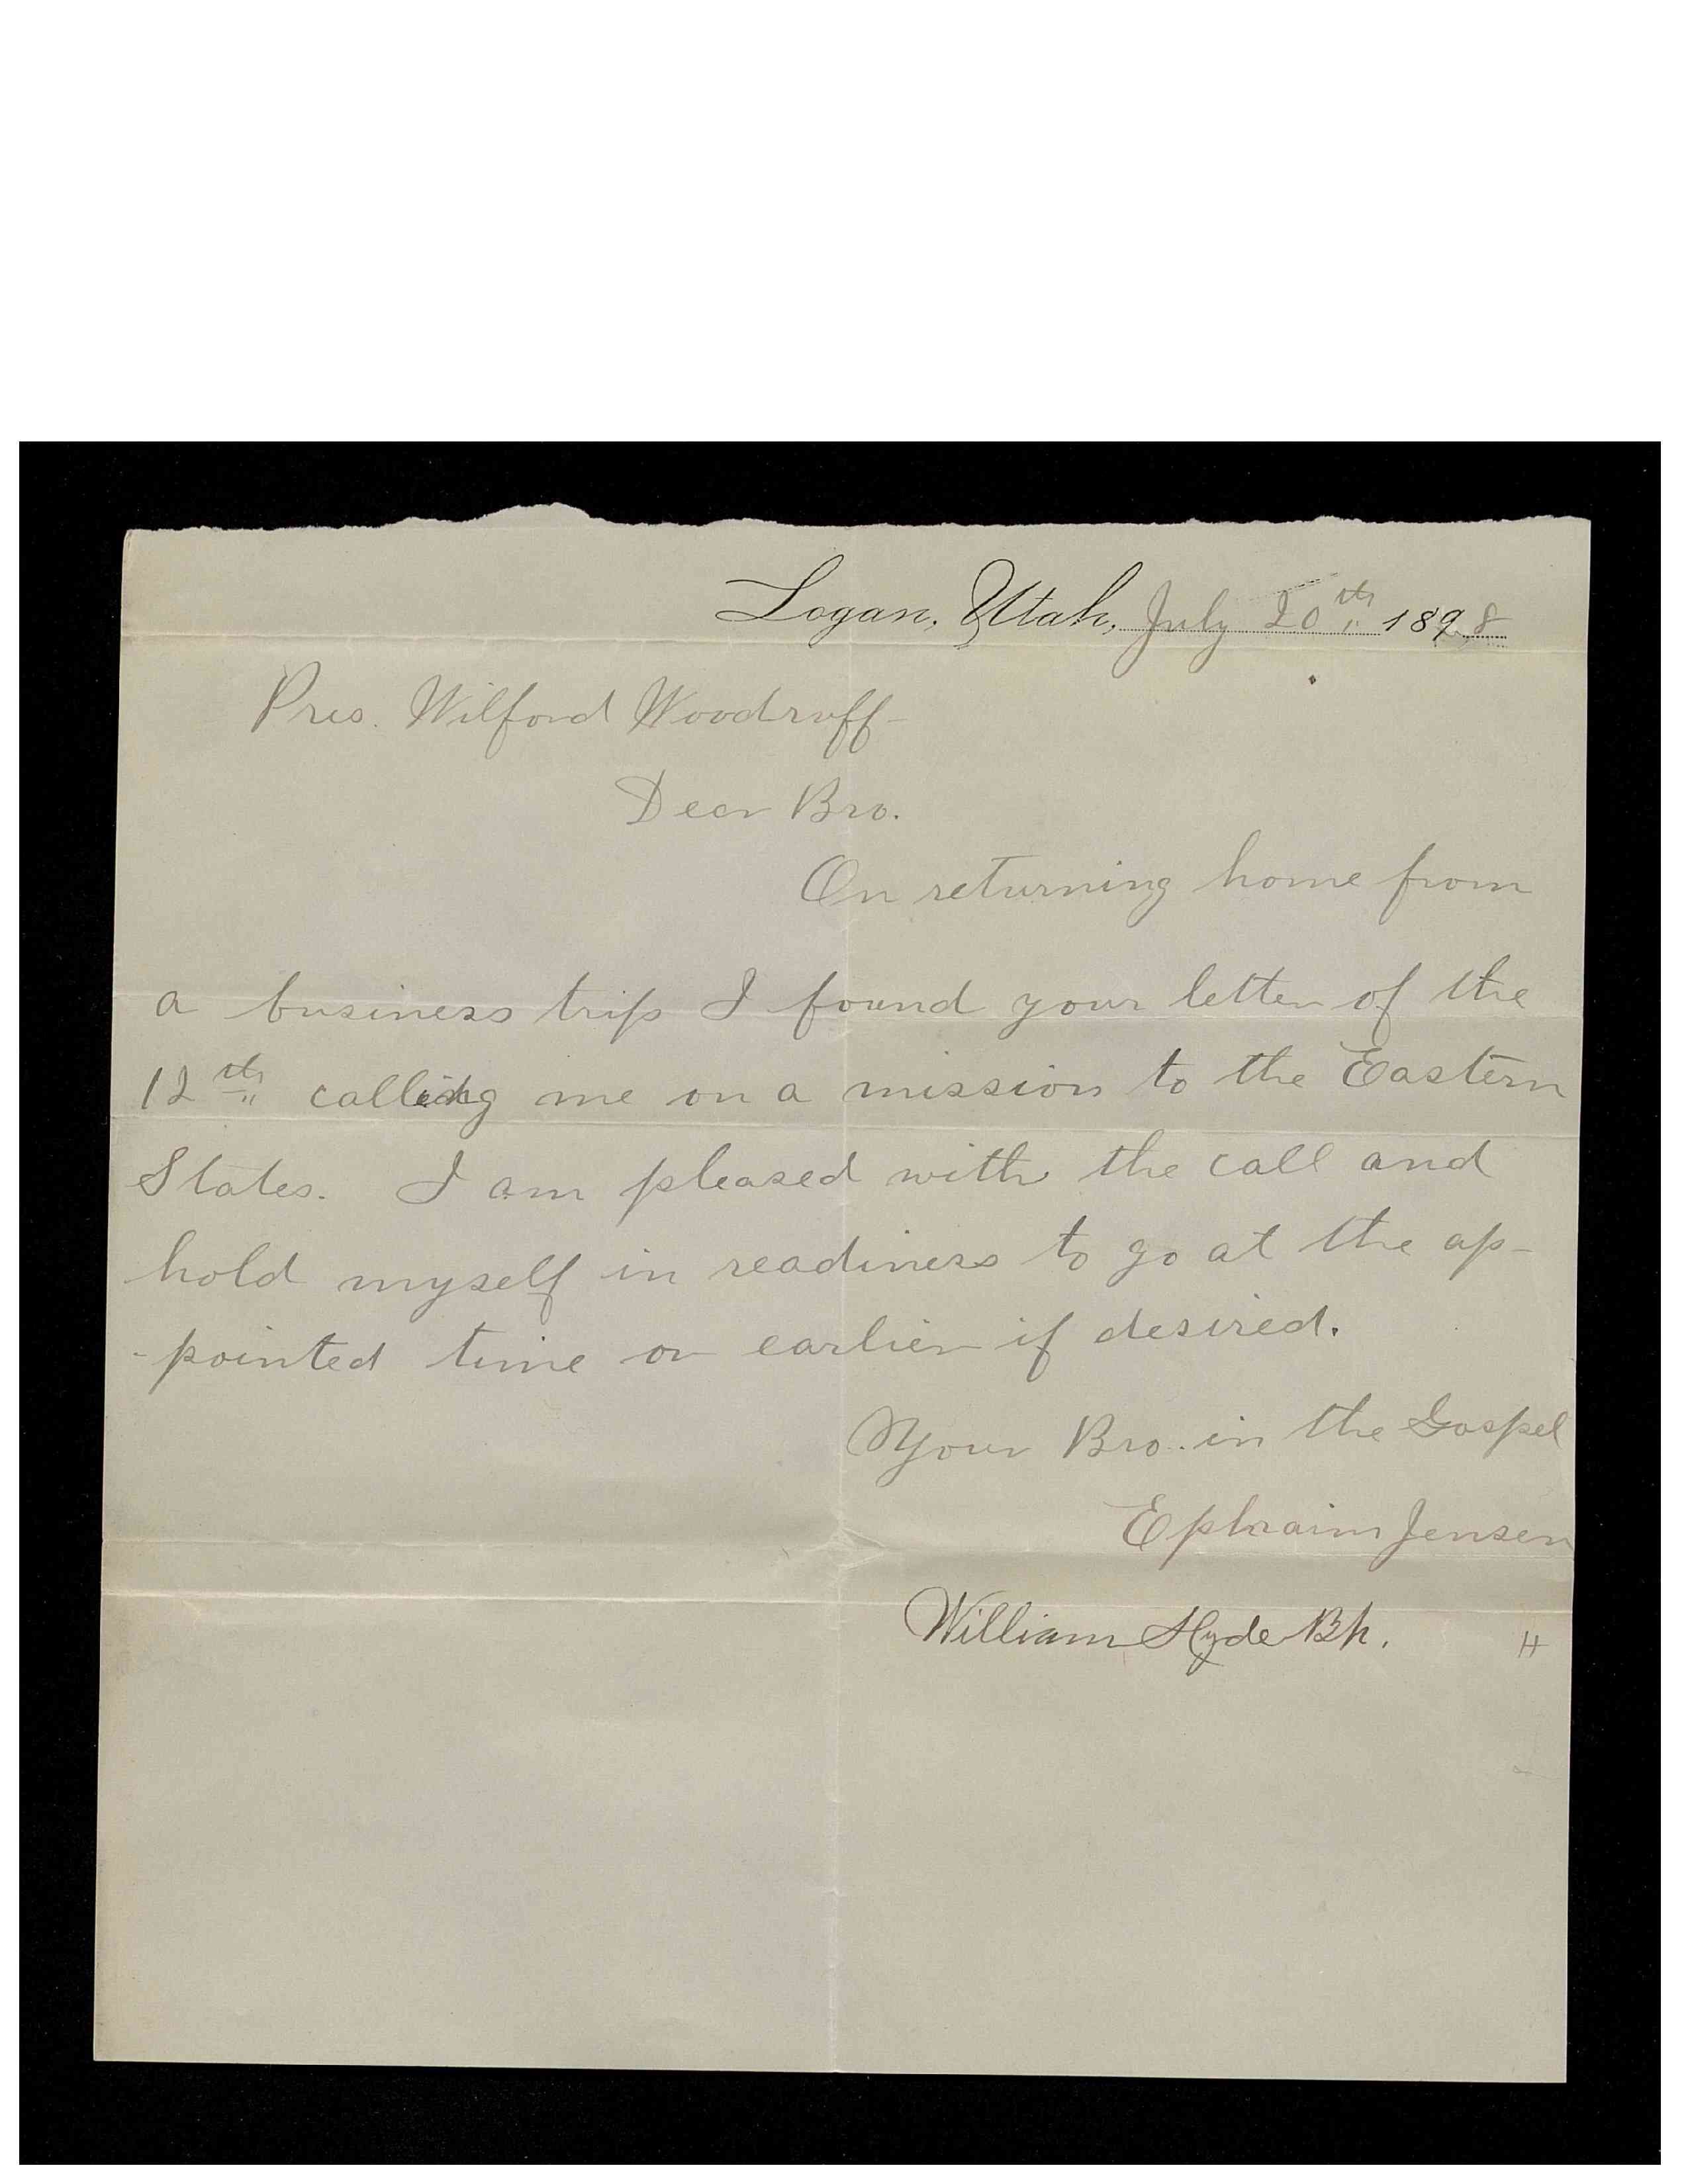 Logan, Utah, July 20th 1898
Pres. Wilford Woodruff
Dear Bro.
On returning home from
a business trip I found your letter of the
12th calling me on a mission to the Eastern
States. I am pleased with the call and
hold myself in readiness to go at the ap-
-pointed time or earlier if desired.
Your Bro. in the Gospel
Ephraim Jensen
William Hyde Bh.